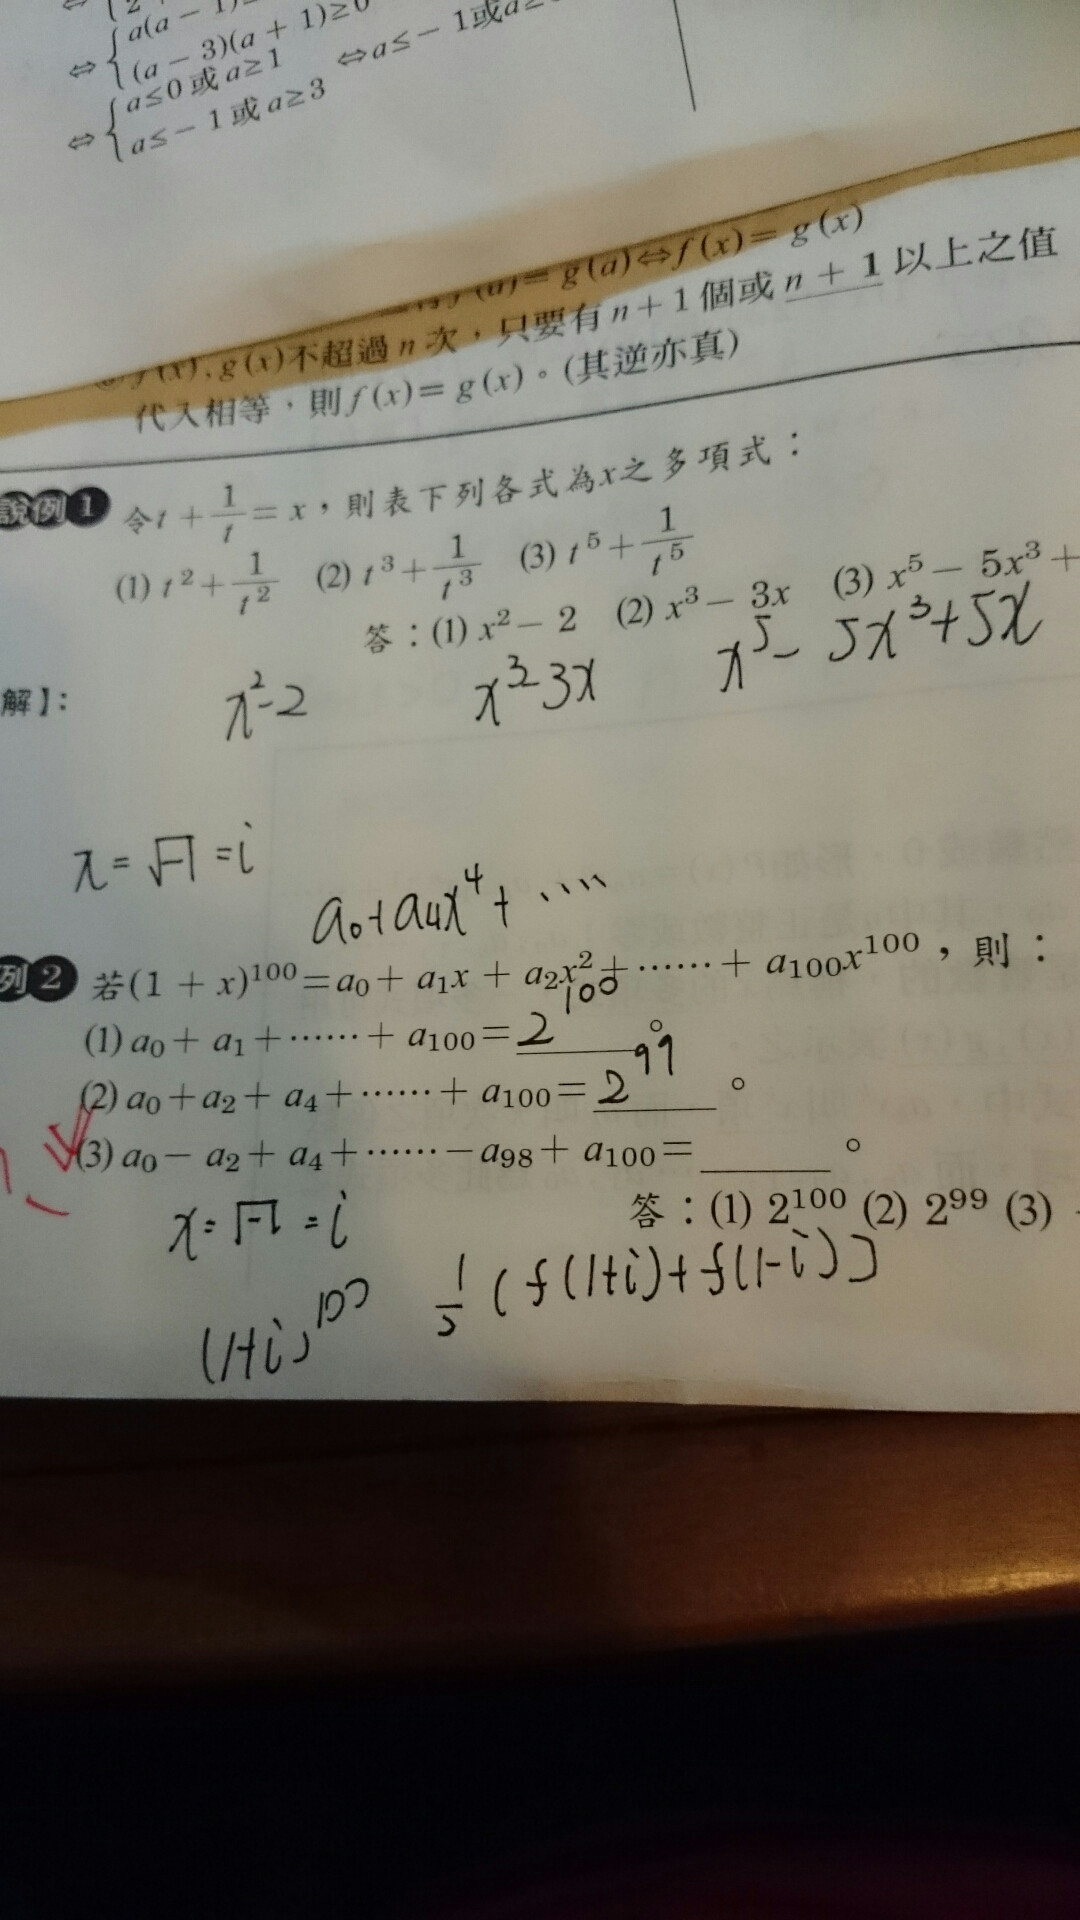 ⇔ { a(a − 1)
(a − 3)(a + 1)≥0
⇔ { a≤0 或 a≥1
a≤− 1 或 a≥3
⇔a≤− 1或a≥
g(a)⇔f(x)= g(x)
f(x), g(x)不超過 n 次，只要有 n + 1 個或 n + 1 以上之值
代入相等，則 f(x)= g(x)。(其逆亦真)
說例 1 令t + 1/t = x，則表下列各式為x之多項式：
(1) t² + 1/t² (2) t³ + 1/t³ (3) t⁵ + 1/t⁵
答：(1) x² − 2 (2) x³ − 3x (3) x⁵ − 5x³ +
解】:
x²-2 x³-3x x⁵- 5x³+5x
x = √-1 = i
a₀+a₄x⁴+ ....
例 2 若(1 + x)¹⁰⁰ = a₀ + a₁x + a₂x² + ⋯⋯ + a₁₀₀x¹⁰⁰，則：
(1) a₀ + a₁ + ⋯⋯ + a₁₀₀ = 2¹⁰⁰ 。
(2) a₀ + a₂ + a₄ + ⋯⋯ + a₁₀₀ = 2⁹⁹ 。
(3) a₀ − a₂ + a₄ + ⋯⋯ − a₉₈ + a₁₀₀ = 。
答：(1) 2¹⁰⁰ (2) 2⁹⁹ (3)
x = √-1 = i
(1+i)¹⁰⁰ ½ ( f(1+i)+f(1-i) ]